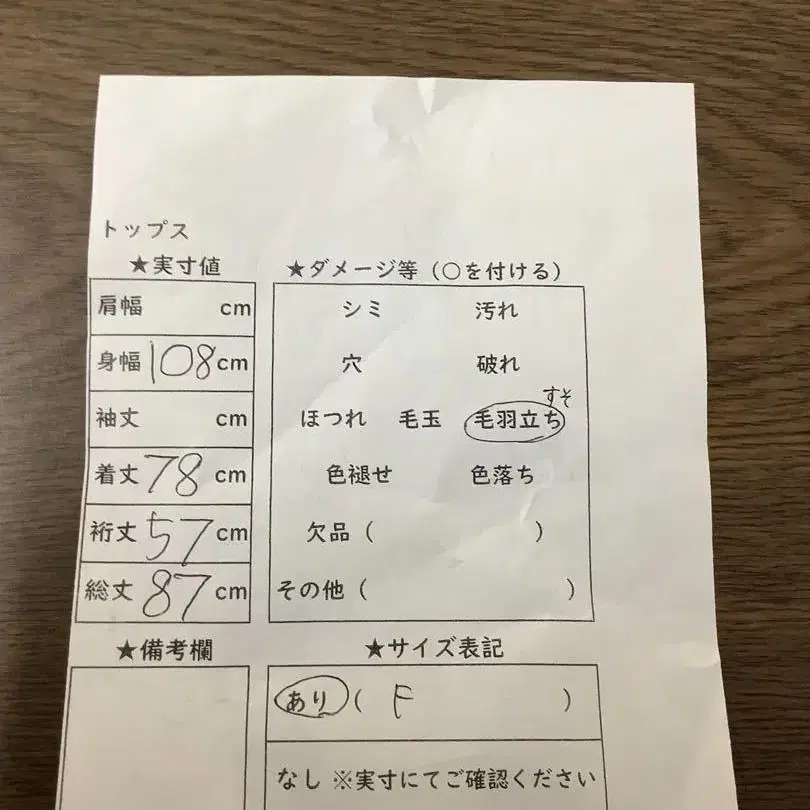 トップス
★実寸値
肩幅 cm
身幅 108 cm
袖丈 cm
着丈 78 cm
裄丈 57 cm
総丈 87 cm
★ダメージ等（○を付ける）
シミ 汚れ
穴 破れ
すそ
ほつれ 毛玉 毛羽立ち
色褪せ 色落ち
欠品（ ）
その他（ ）
★備考欄
★サイズ表記
あり（ F ）
なし ※実寸にてご確認ください